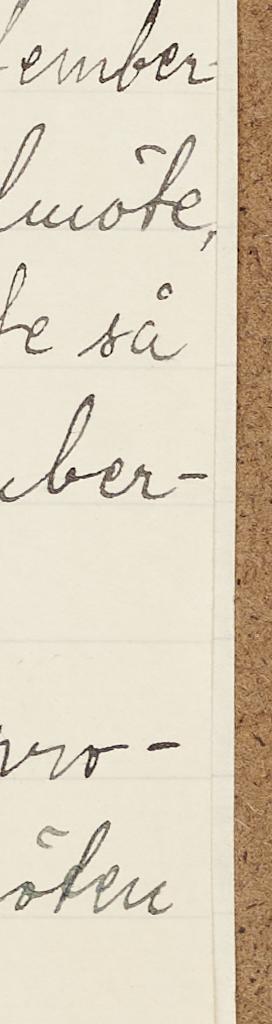 ember-
lmöte,
te så
ber-
pro-
öten